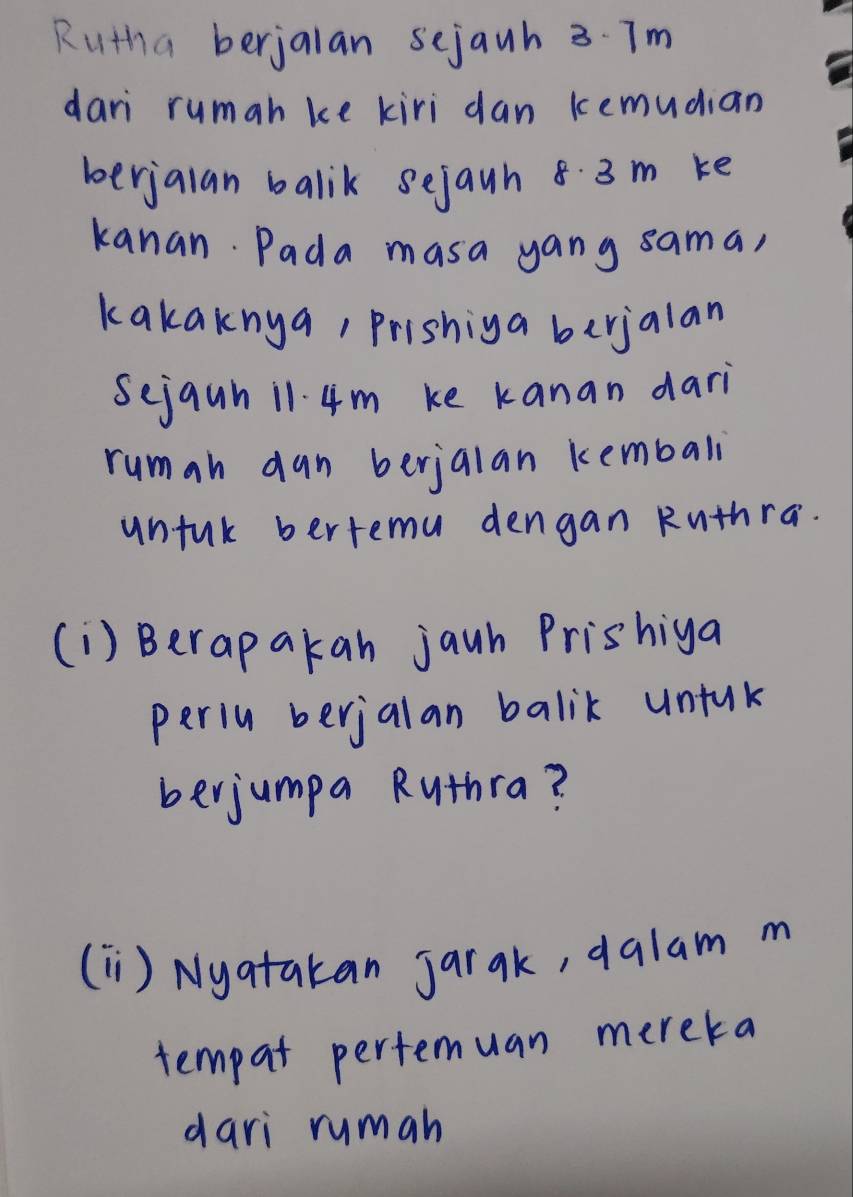 Rutha berjalan sejauh 3.7m
dari rumah ke kiri dan kemudian
berjalan balik sejauh 8.3 m ke
kanan. Pada masa yang sama,
kakaknya, Prishiya berjalan
sejauh 11.4m ke kanan dari
rumah dan berjalan kembali
untuk bertemu dengan Ruthra.
(i) Berapakah jauh Prishiya
perlu berjalan balik untuk
berjumpa Ruthra?
(ii) Nyatakan jarak, dalam m
tempat pertemuan mereka
dari rumah